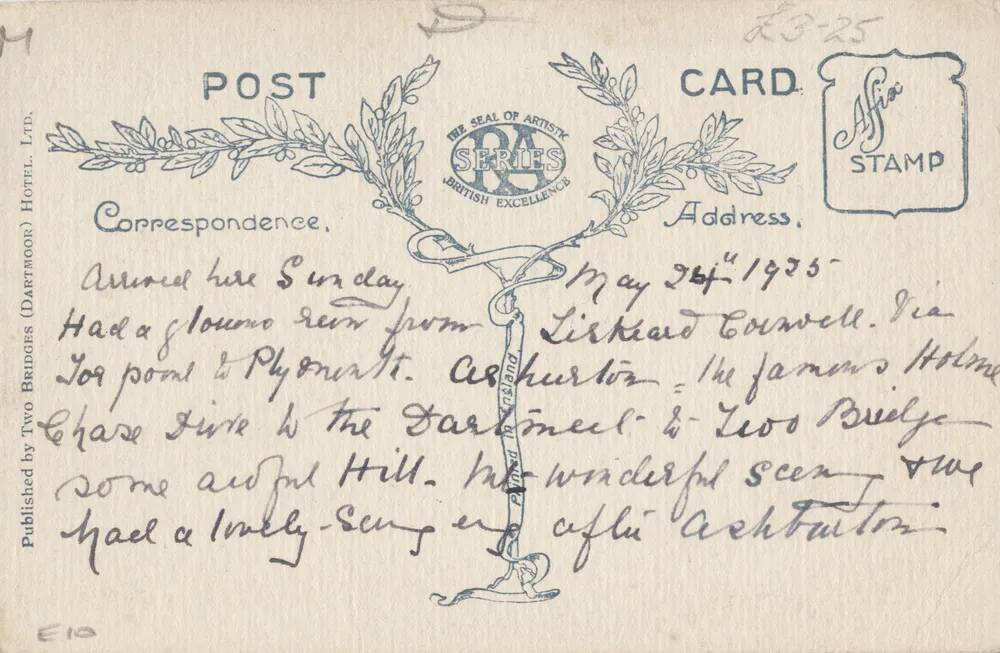 £3-25
POST CARD
Affix
STAMP
THE SEAL OF ARTISTIC
RA
SERIES
BRITISH EXCELLENCE
Correspondence.
Address.
Published by Two Bridges (Dartmoor) Hotel. Ltd.
Printed in England
May 24th 1925
Arrived here Sunday
Had a glorious run from Liskeard Cornwall. Via
Tor point to Plymouth. Ashburton = the famous Holne
Chase Drive to the to Two Bridge
some awful Hill. wonderful & we
had a lovely after Ashburton
E10